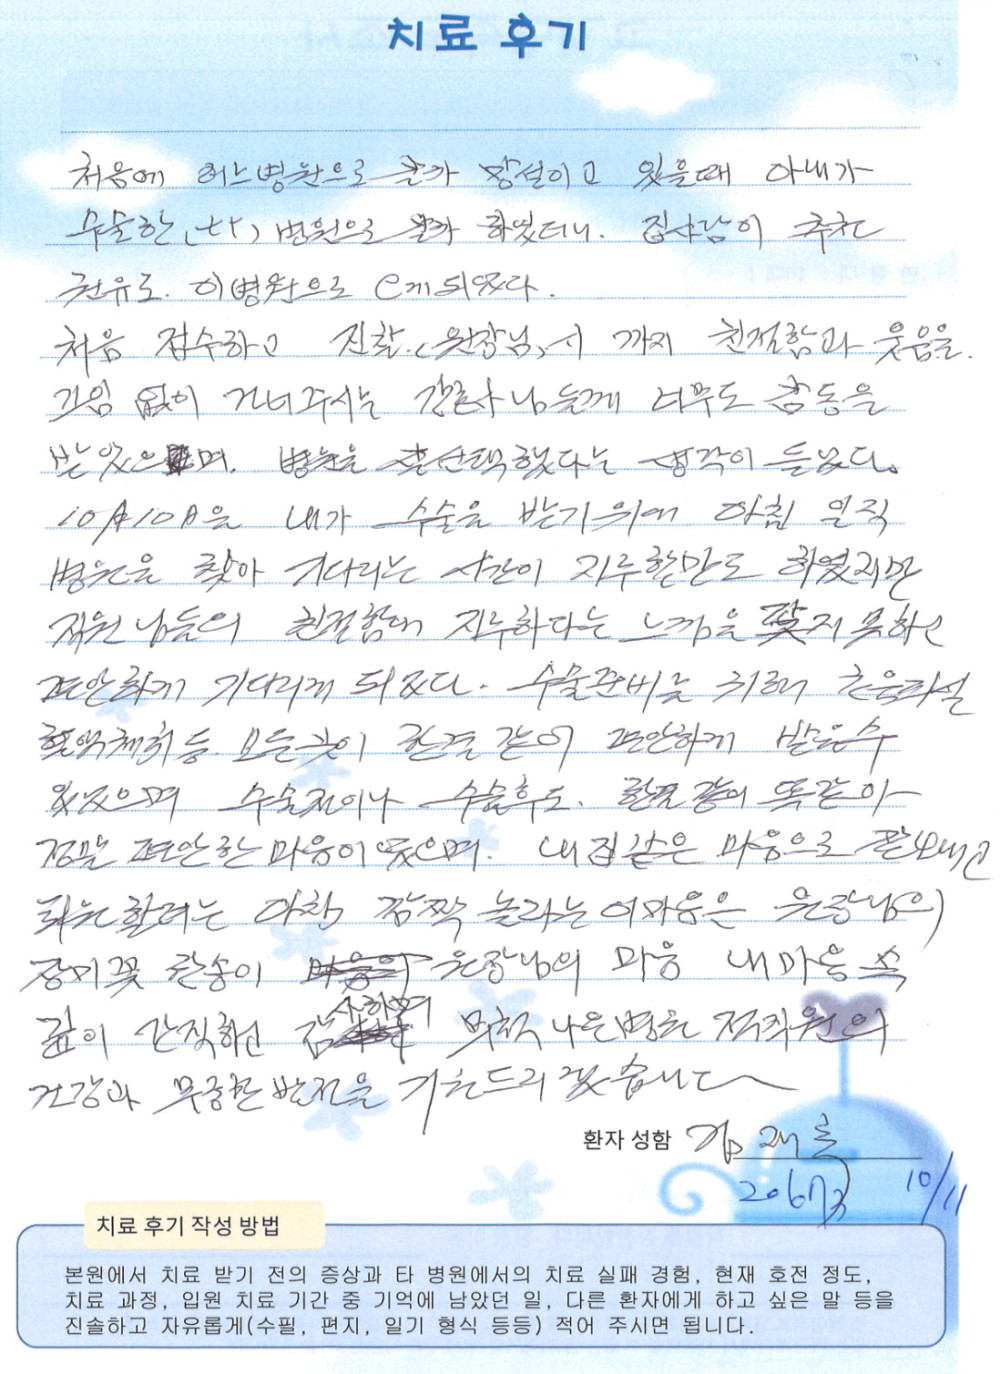 치료 후기
처음에 어느병원으로 갈까 망설이고 있을때 아내가
수술한 (타) 병원으로 갈까 하였더니. 집사람이 추천
권유로. 이병원으로 오게되었다.
처음 접수하고 진찰.(원장님)시 까지 친절함과 웃음을.
끄임 없이 건너주시는 간호사님들께 너무도 감동을
받았으며. 병원을 잘선택했다는 생각이 들었다.
10月10日은 내가 수술을 받기위해 아침 일직
병원을 찾아 기다리는 시간이 지루할만도 하였지만
직원님들의 친절함에 지루하다는 느낌을 찾지 못하고
편안하게 기다리게 되었다. 수술준비를 위해
혈액채취등. 모든 것이 한결 같이 편안하게 받을수
있었으며 수술전이나 수술후도. 한결 같이 똑같아
정말 편안한 마음이 됬으며. 내집같은 마음으로 잘보내고
퇴원할려는 아침 깜짝 놀라는 이마음은 원장님의
장미꽃 한송이 원장님의 마음 내마음 속
깊이 간직하면 감사하며 나은병원 직원의
건강과 무궁한 발전을 기원드리겠습니다
환자 성함 김재
10/11
치료 후기 작성 방법
본원에서 치료 받기 전의 증상과 타 병원에서의 치료 실패 경험, 현재 호전 정도,
치료 과정, 입원 치료 기간 중 기억에 남았던 일, 다른 환자에게 하고 싶은 말 등을
진솔하고 자유롭게(수필, 편지, 일기 형식 등등) 적어 주시면 됩니다.